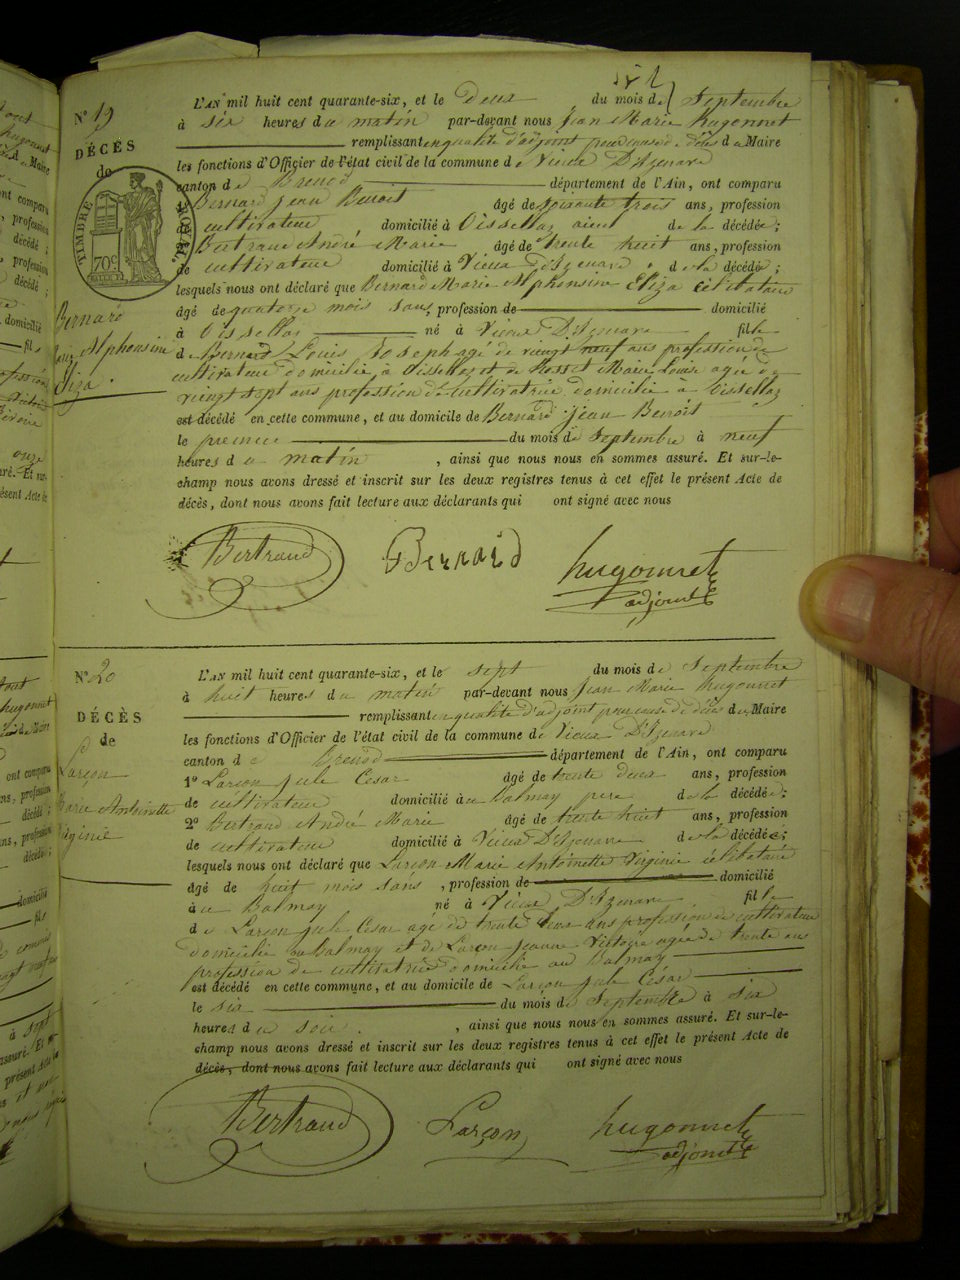 N° 19
DÉCÈS
de
TIMBRE ROYAL
70c
Bernard
Marie Alphonsine
Eliza
L'AN mil huit cent quarante-six, et le Deux du mois de Septembre
à six heures du matin par-devant nous Jean Marie hugonnet
remplissant en qualité d'adjoint pour cause de décès du Maire
les fonctions d'Officier de l'état civil de la commune de Vieux D'Izenave
canton de Brenod département de l'Ain, ont comparu
1° Bernard jean Benoit âgé de soixante trois ans, profession
de cultivateur domicilié à Oissellaz aieul de la décédée;
2° Bertraud André Marie âgé de trente huit ans, profession
de cultivateur domicilié à Vieux D'Izenave de la décédée;
lesquels nous ont déclaré que Bernard Marie Alphonsine Eliza célibataire
âgé de quatorze mois sans, profession de domicilié
à Oissellaz né à Vieux D'Izenave fille
de Bernard Louis Joseph agé de vingt neuf ans profession de
cultivateur domicilié à Oissellaz et de Rosset Marie Louise agée de
vingt sept ans profession de cultivatrice domicilié à Oissellaz
est décédé en cette commune, et au domicile de Bernard jean Benoit
le premier du mois de Septembre à neuf
heures du matin, ainsi que nous nous en sommes assuré. Et sur-le-
champ nous avons dressé et inscrit sur les deux registres tenus à cet effet le présent Acte de
décès, dont nous avons fait lecture aux déclarants qui ont signé avec nous
Bertraud Bernard hugonnet
adjoint
N° 20
DÉCÈS
de
Larçon
Marie Antoinette
Virginie
L'AN mil huit cent quarante-six, et le sept du mois de Septembre
à huit heures du matin par-devant nous Jean Marie hugonnet
remplissant en qualité d'adjoint pour cause de décès du Maire
les fonctions d'Officier de l'état civil de la commune de Vieux D'Izenave
canton de Brenod département de l'Ain, ont comparu
1° Larçon jule César âgé de trente deux ans, profession
de cultivateur domicilié à au Balmay pere de la décédée;
2° Bertraud André Marie âgé de trente huit ans, profession
de cultivateur domicilié à Vieux D'Izenave de la décédée;
lesquels nous ont déclaré que Larçon Marie Antoinette Virginie célibataire
âgé de huit mois sans, profession de domicilié
à au Balmay né à Vieux D'Izenave fille
de Larçon jule César agé de trente deux ans profession de cultivateur
domicilié au Balmay et de Larçon jeanne Victoire agée de trente ans
profession de cultivatrice domicilié au Balmay
est décédé en cette commune, et au domicile de Larçon jule César
le six du mois de Septembre à six
heures du soir, ainsi que nous nous en sommes assuré. Et sur-le-
champ nous avons dressé et inscrit sur les deux registres tenus à cet effet le présent Acte de
décès, dont nous avons fait lecture aux déclarants qui ont signé avec nous
Bertraud Larçon hugonnet
adjoint